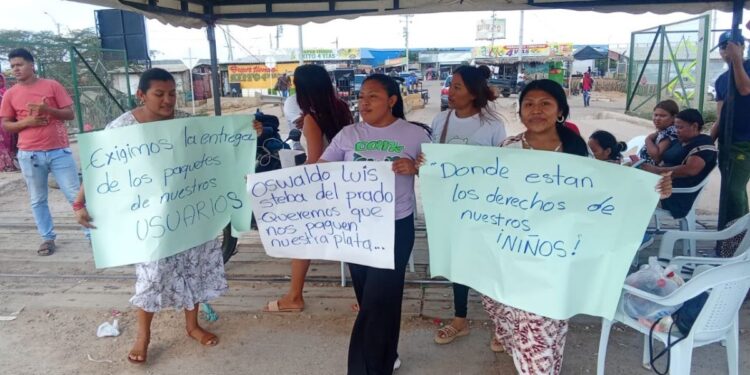 Exigimos la entrega
de los paquetes
de nuestros
USUARIOS
OSWALDO LUIS
steba del prado
Queremos que
nos paguen
nuestra plata...
"Donde estan
los derechos de
nuestros
¡NIÑOS!